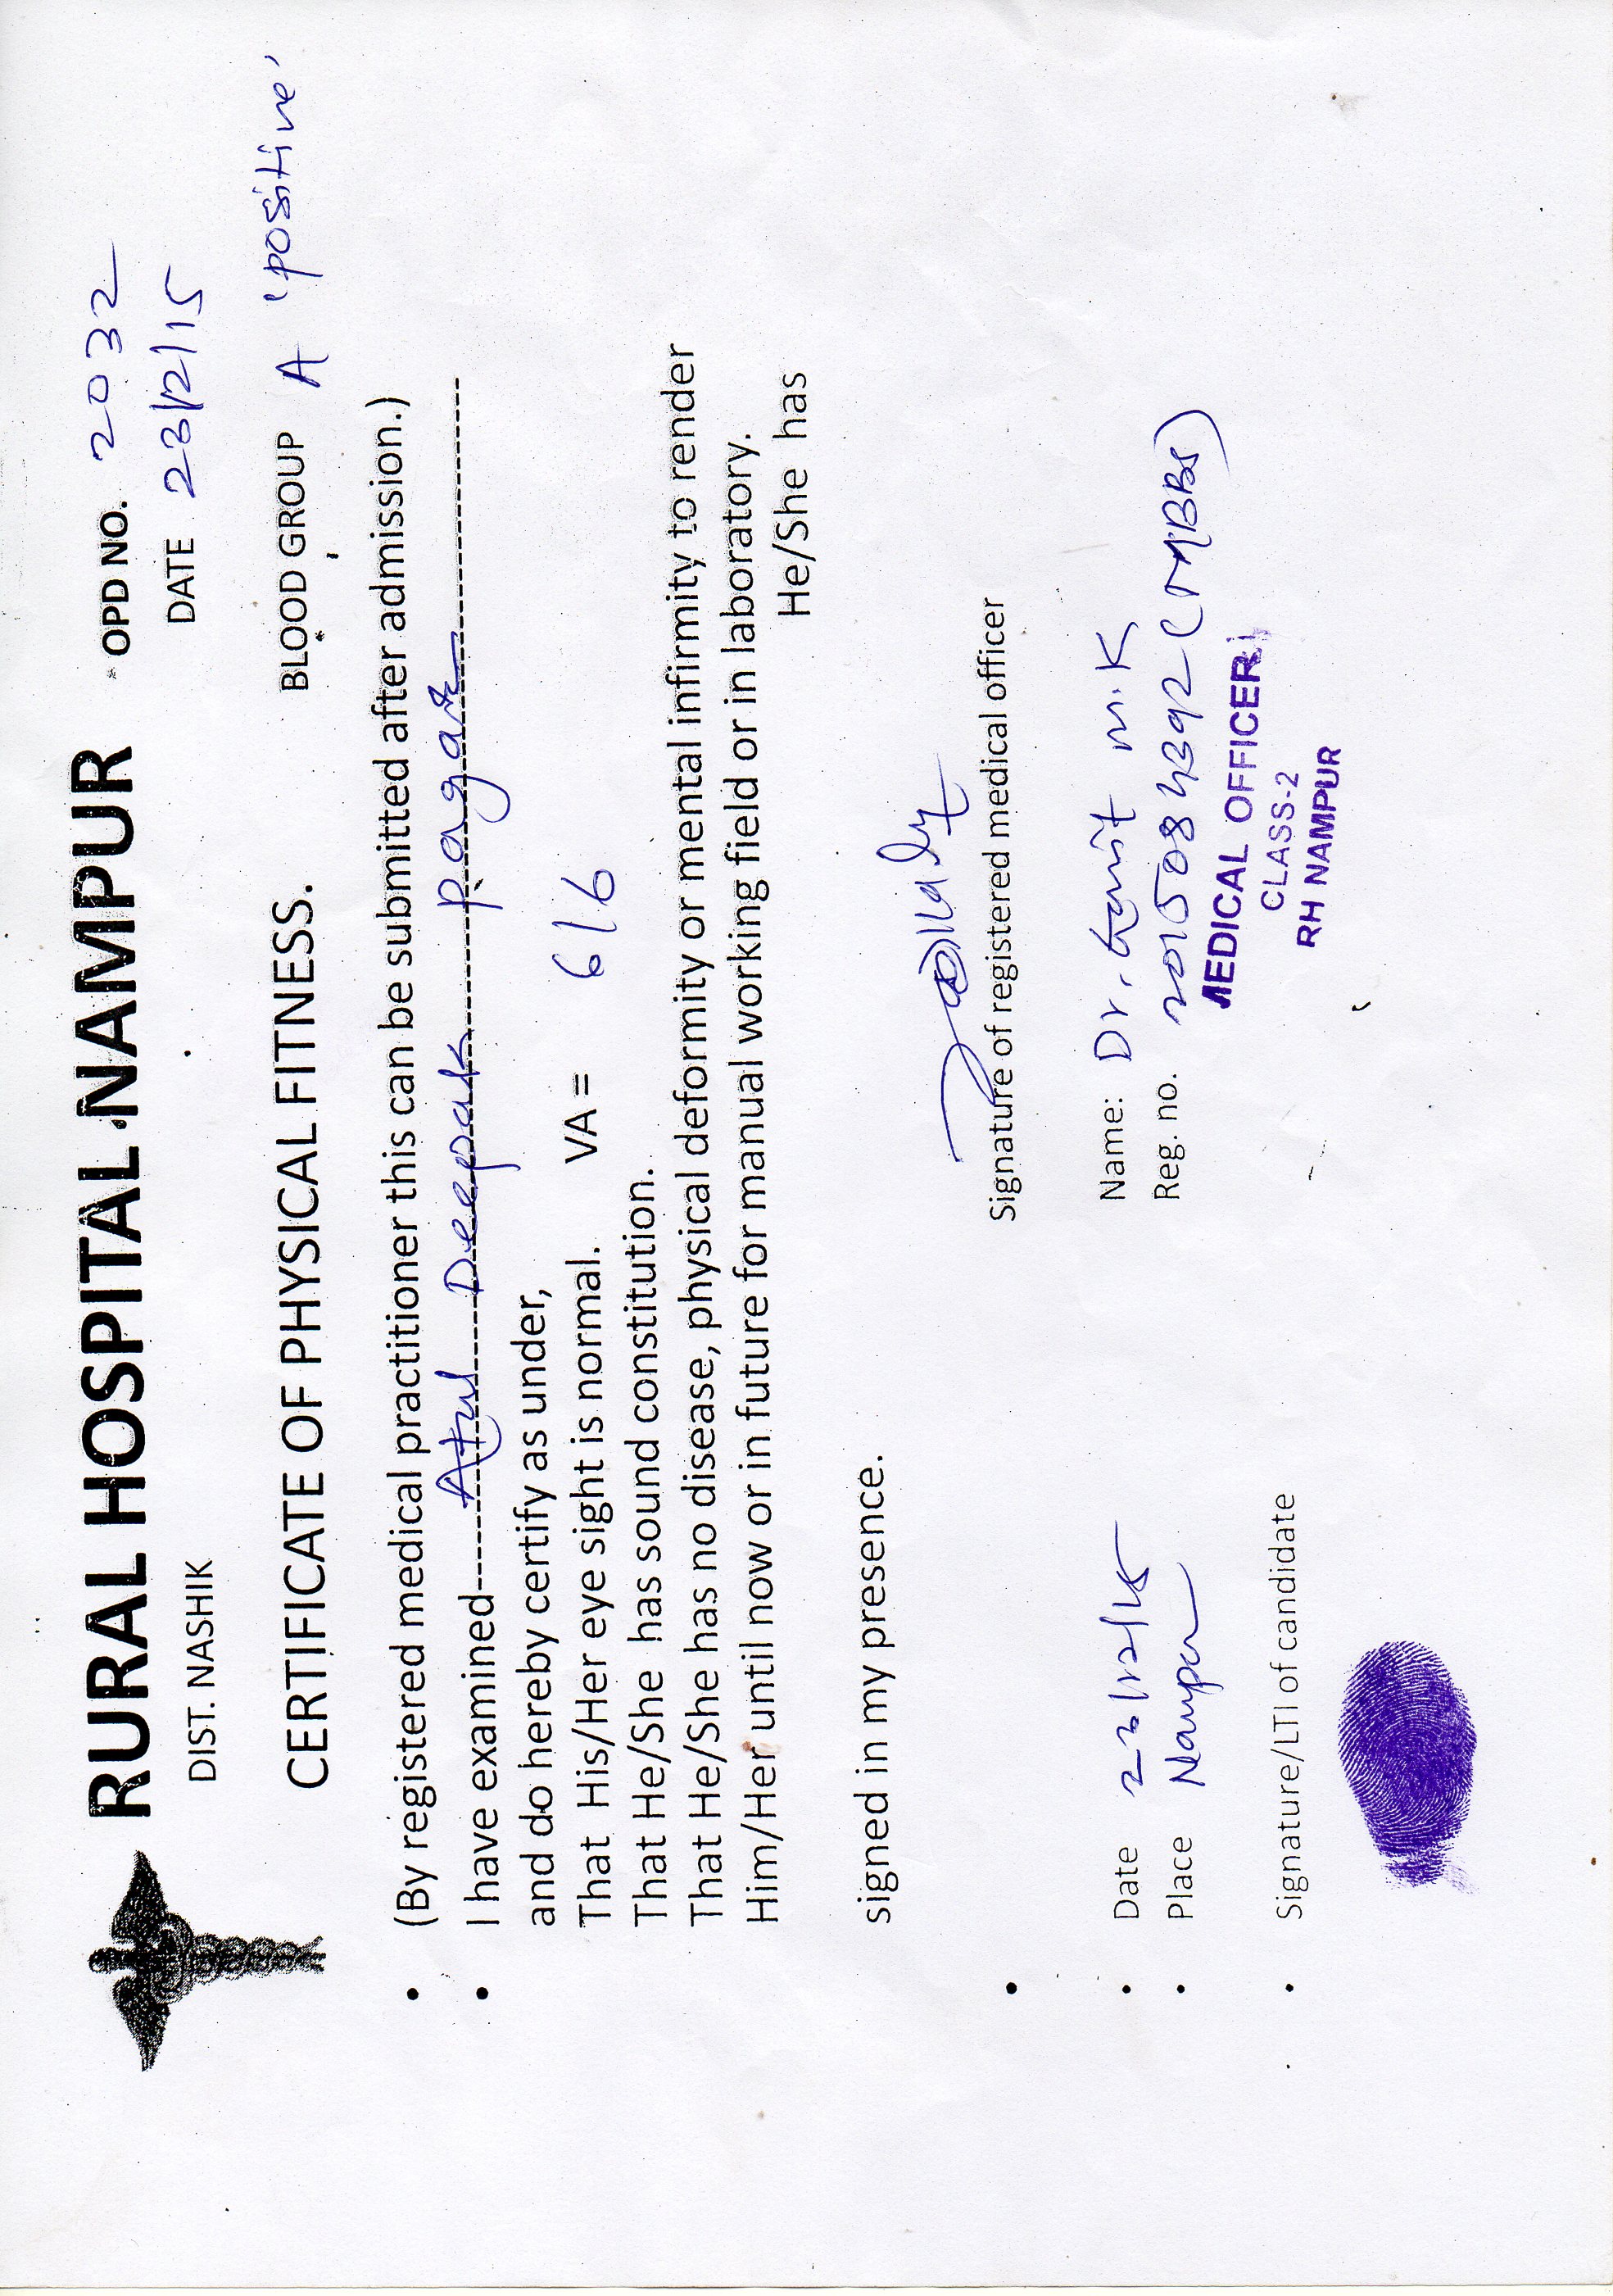 RURAL HOSPITAL NAMPUR
OPD NO. 2032
DIST. NASHIK
DATE 23/12/15
CERTIFICATE OF PHYSICAL FITNESS.
BLOOD GROUP A 'positive'
• (By registered medical practitioner this can be submitted after admission.)
• I have examined Atul Deepak pagar
and do hereby certify as under,
That His/Her eye sight is normal. VA = 6/6
That He/She has sound constitution.
That He/She has no disease, physical deformity or mental infirmity to render
Him/Her until now or in future for manual working field or in laboratory.
He/She has
signed in my presence.
Signature of registered medical officer
• Date 23/12/15
• Place Nampur
Name: Dr. Gavit M.K
Reg. no. 2015084392 (MBBS)
MEDICAL OFFICER
CLASS-2
RH NAMPUR
• Signature/LTI of candidate